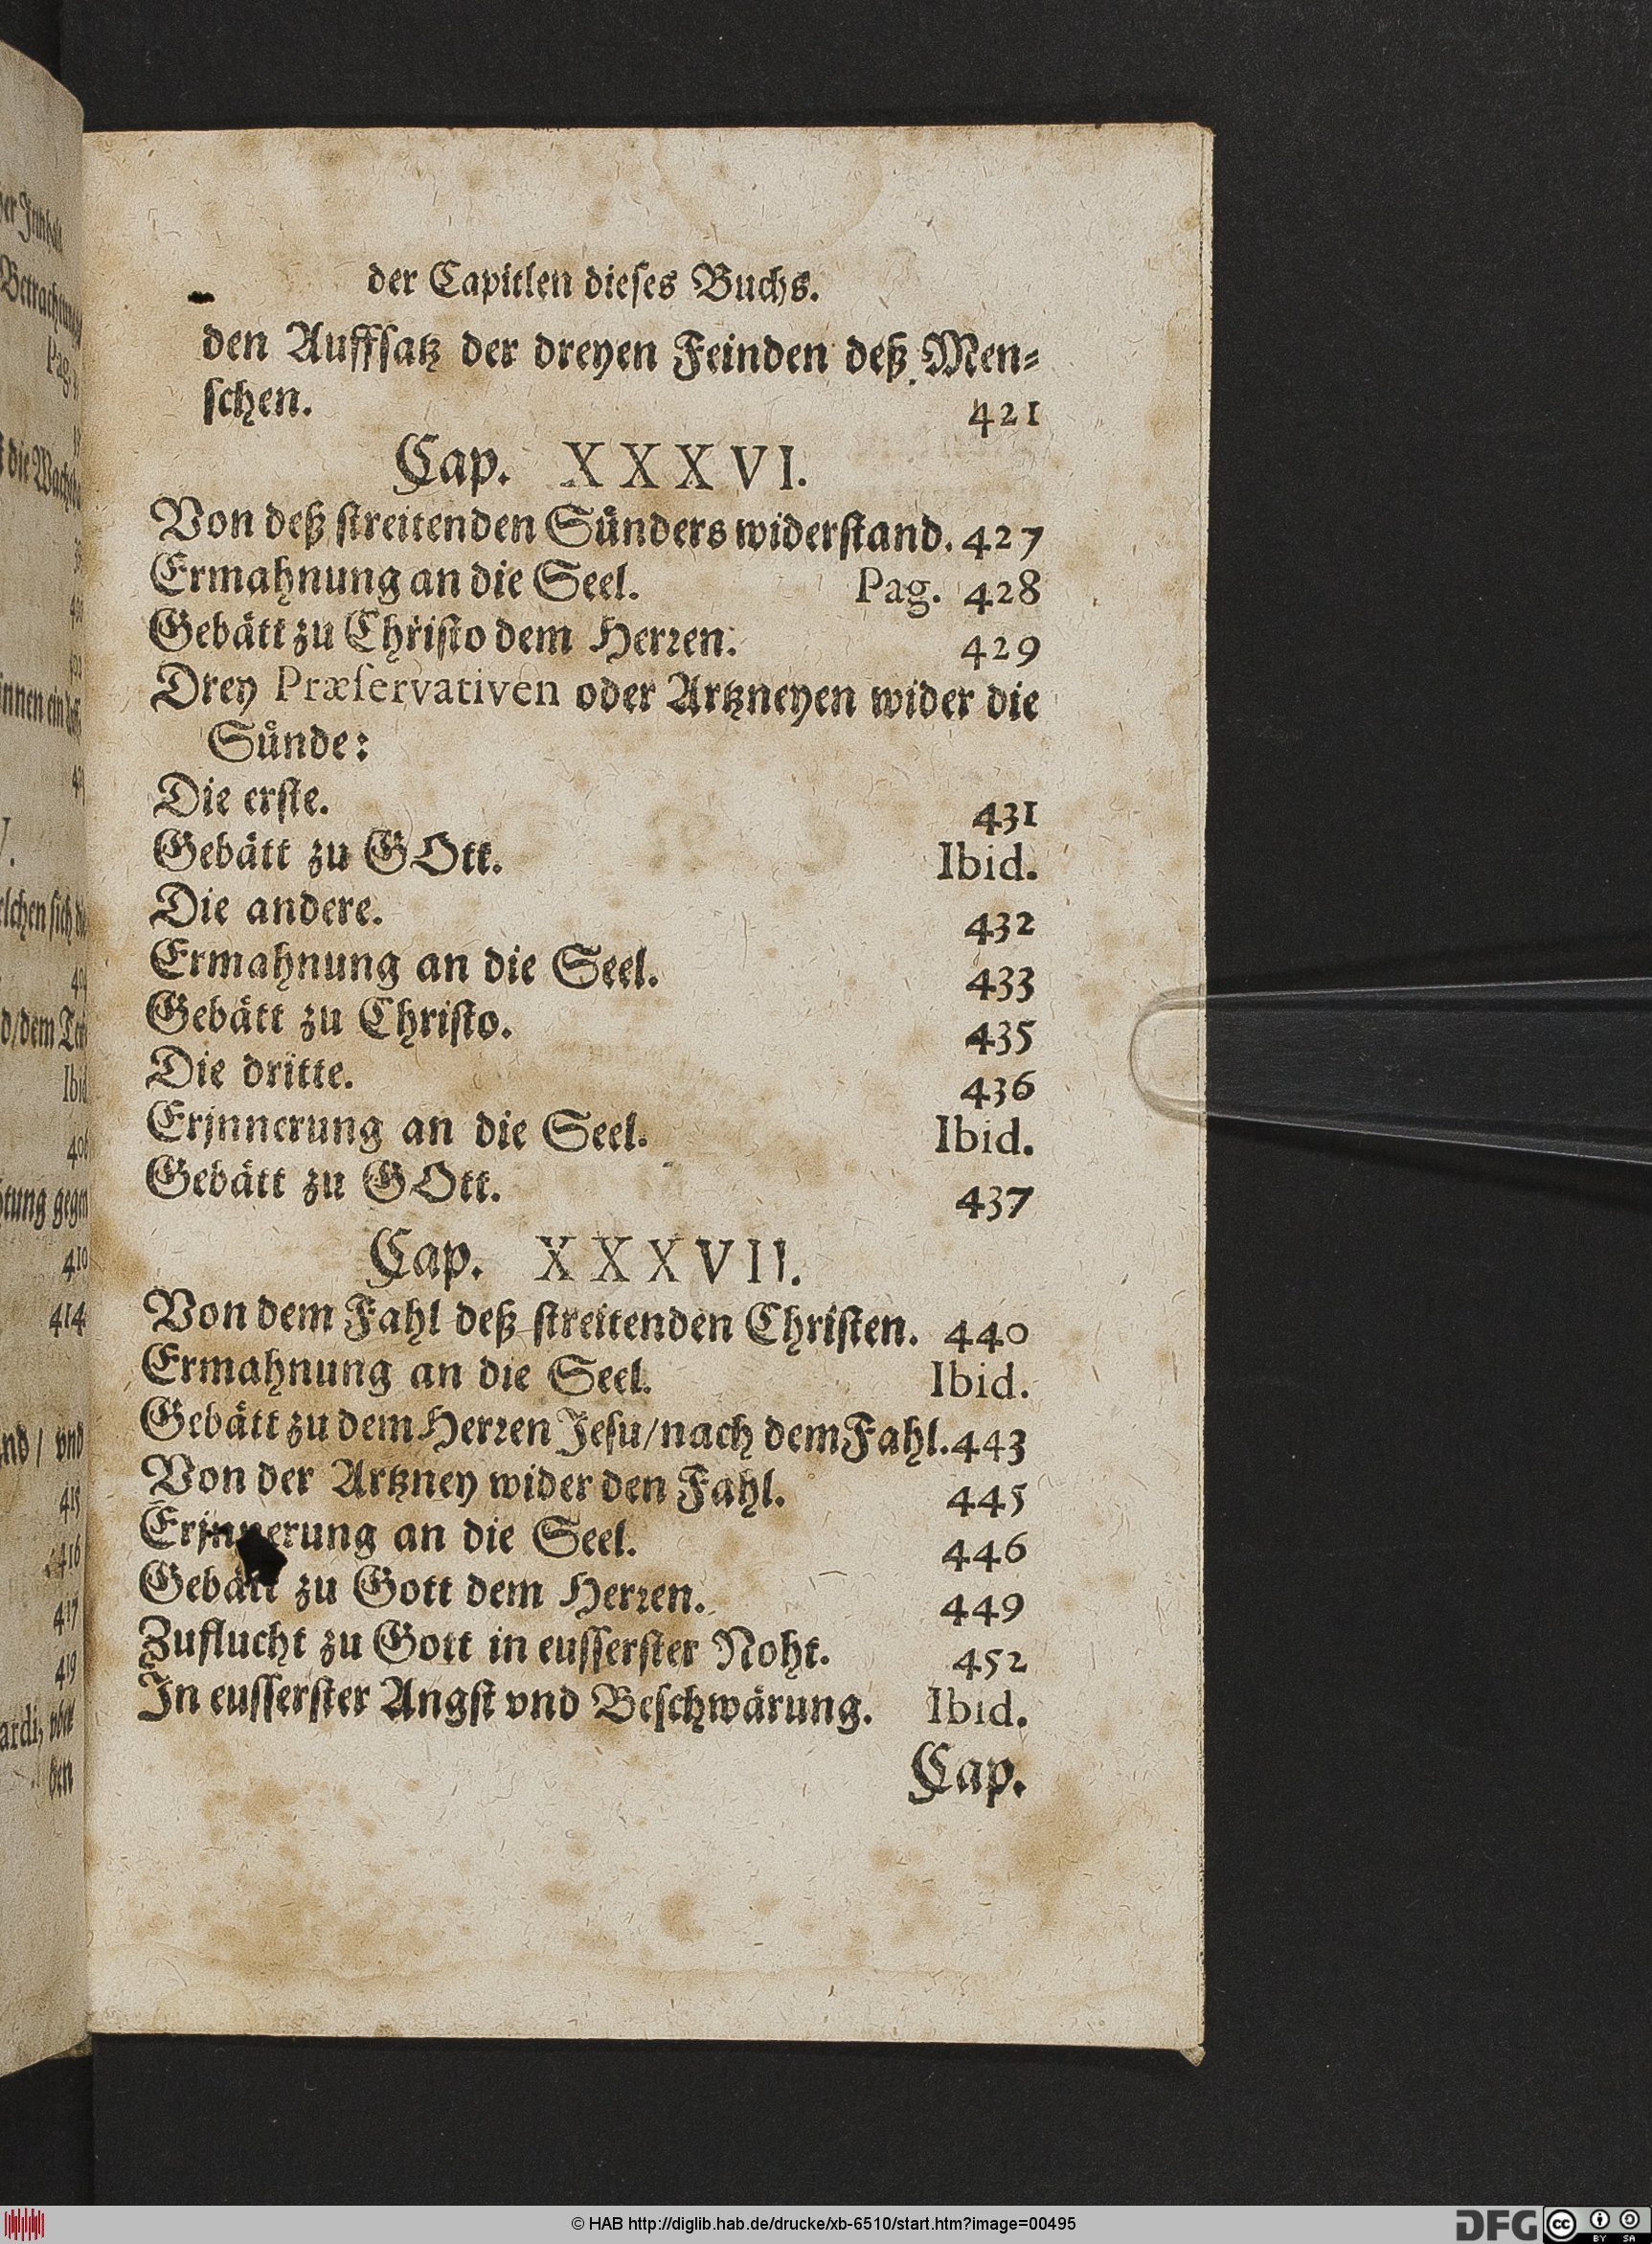 der Capitlen dieses Buchs.
den Auffsatz der dreyen Feinden deß Men-
schen. 421
Cap. XXXVI.
Von deß streitenden Sünders widerstand. 427
Ermahnung an die Seel. Pag. 428
Gebätt zu Christo dem Herren. 429
Drey Præservativen oder Artzneyen wider die
Sünde:
Die erste. 431
Gebätt zu GOtt. Ibid.
Die andere. 432
Ermahnung an die Seel. 433
Gebätt zu Christo. 435
Die dritte. 436
Erjnnerung an die Seel. Ibid.
Gebätt zu GOtt. 437
Cap. XXXVII.
Von dem Fahl deß streitenden Christen. 440
Ermahnung an die Seel. Ibid.
Gebätt zu dem Herren Jesu/nach dem Fahl. 443
Von der Artzney wider den Fahl. 445
Erjnnerung an die Seel. 446
Gebätt zu Gott dem Herren. 449
Zuflucht zu Gott in eusserster Noht. 452
In eusserster Angst vnd Beschwärung. Ibid.
Cap.
© HAB http://diglib.hab.de/drucke/xb-6510/start.htm?image=00495
DFG
cc BY SA